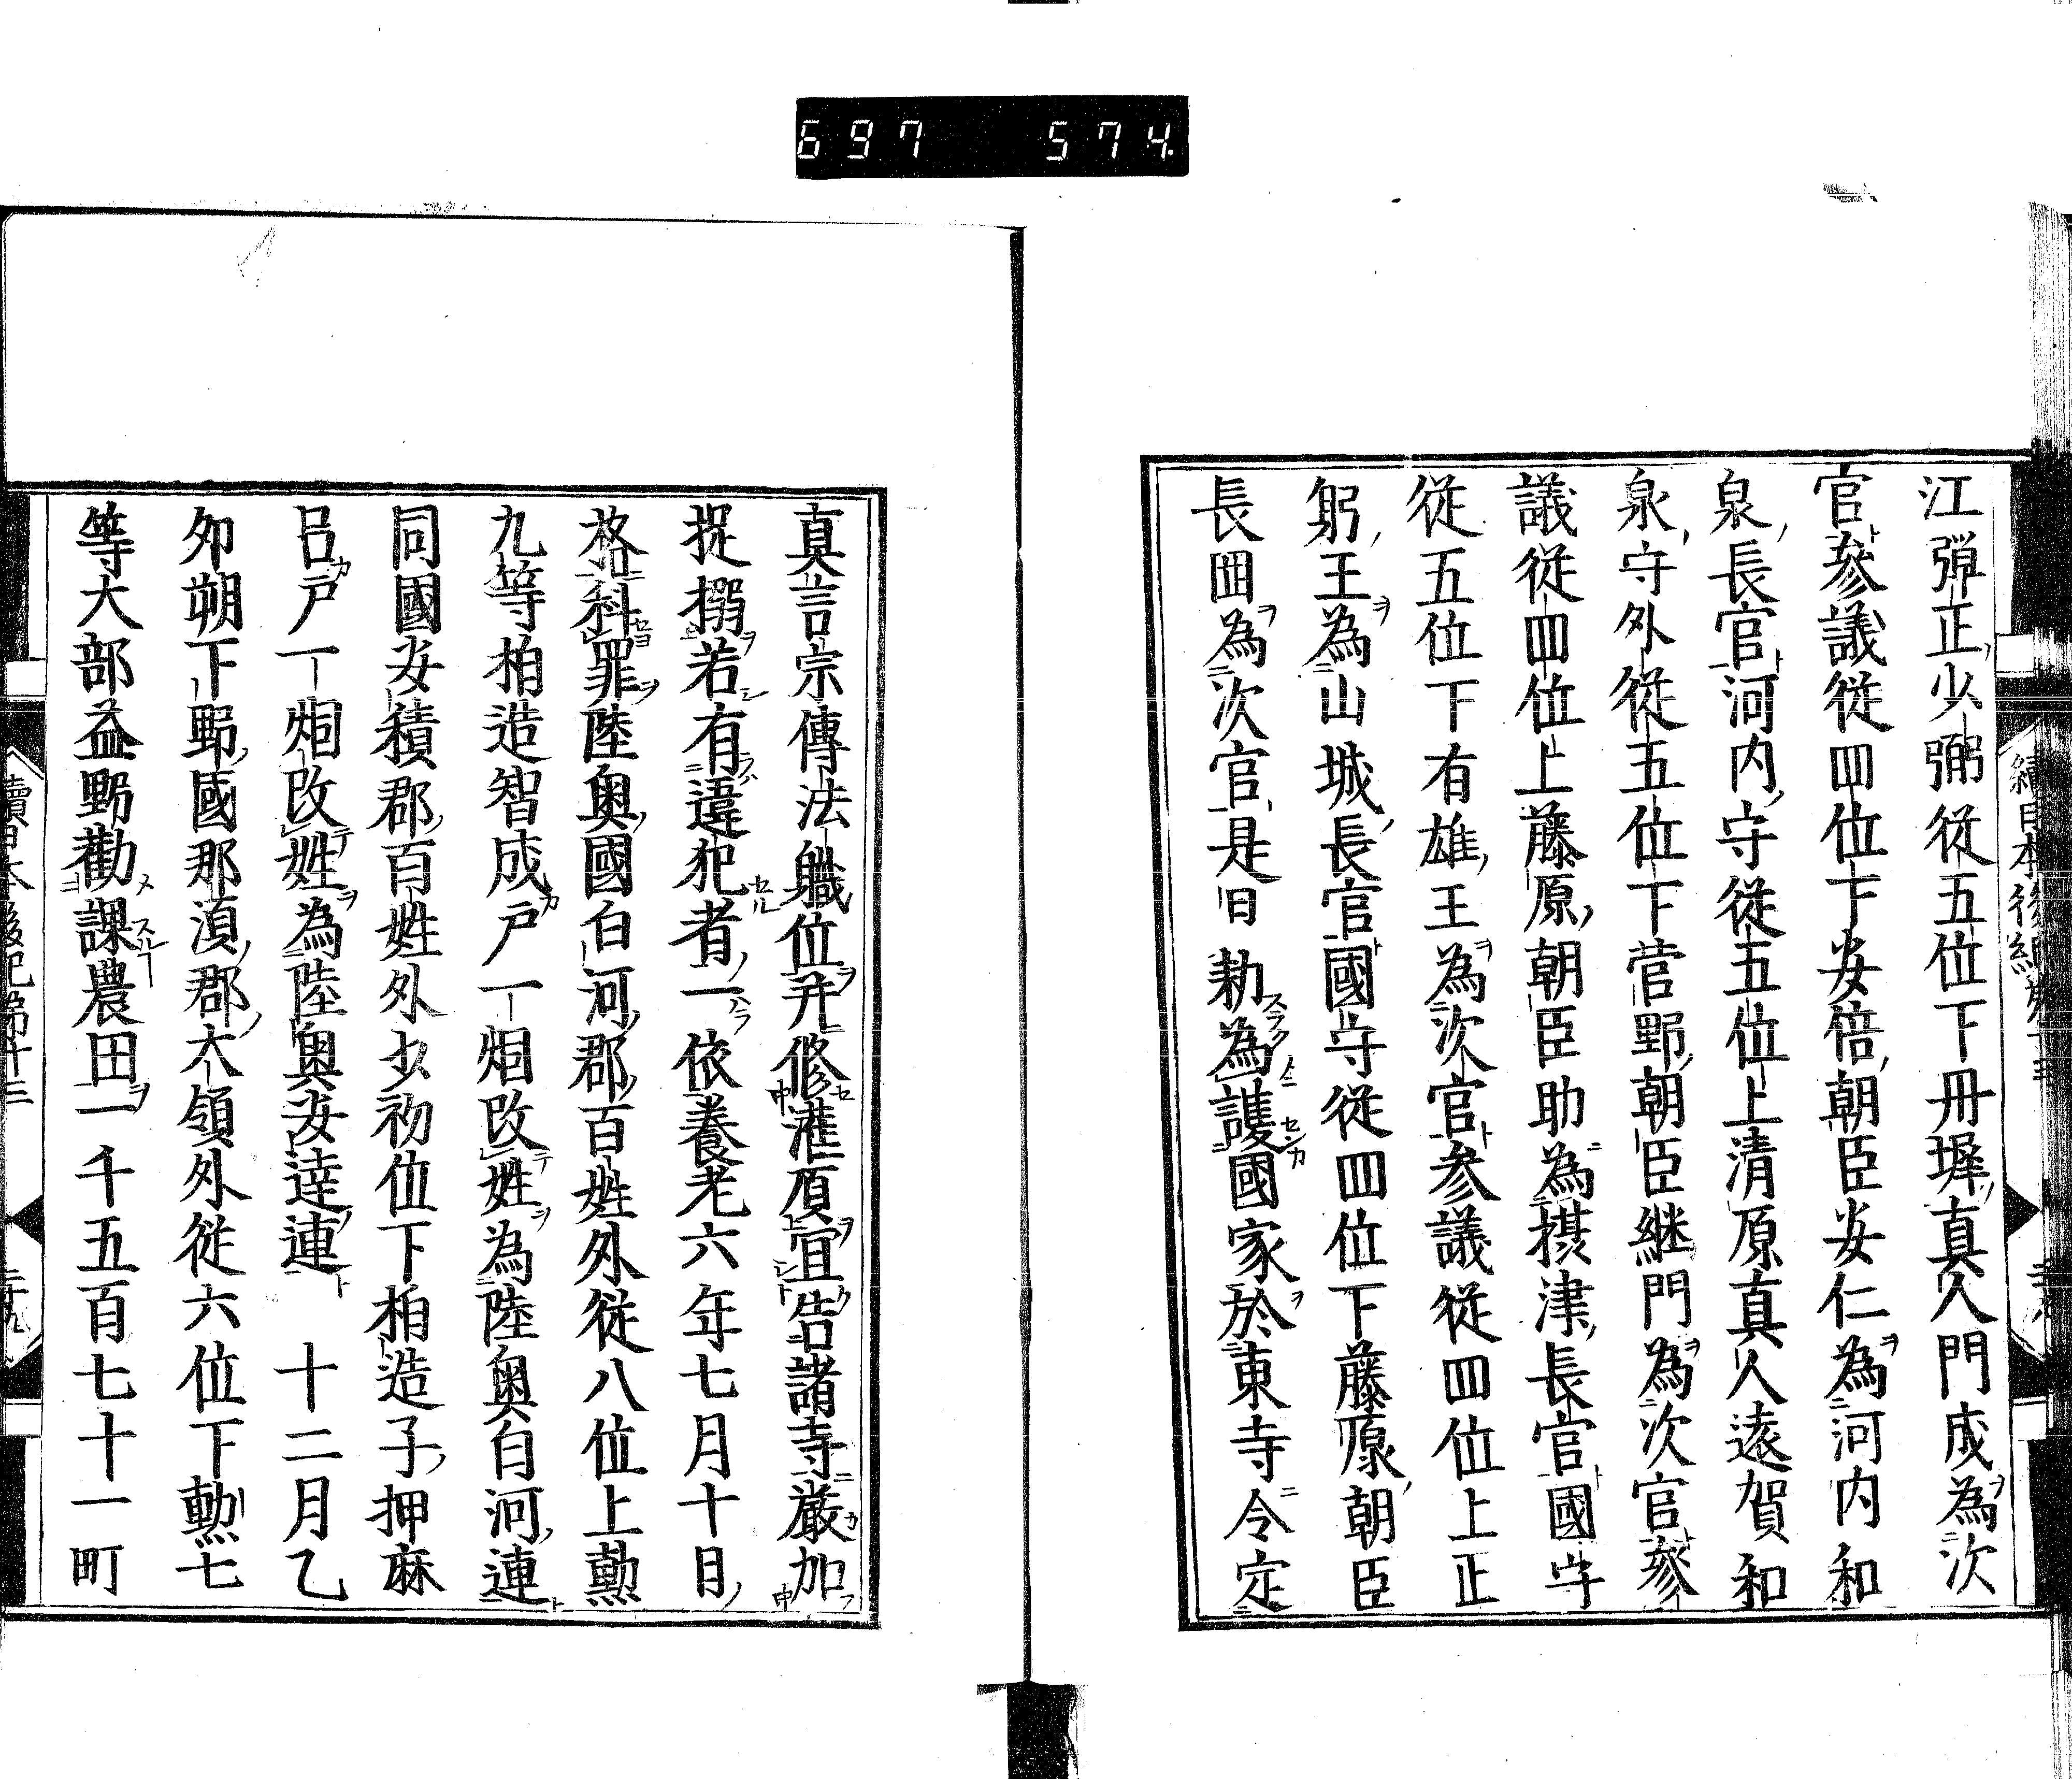 697 574
江彈正少弼從五位下丹墀真人門成為次
官參議從四位下安倍朝臣安仁為河内和
泉長官河内守從五位上清原真人遠賀和
泉守外從五位下菅野朝臣継門為次官參
議從四位上藤原朝臣助為摂津長官國守
從五位下有雄王為次官参議從四位上正
躬王為山城長官國守從四位下藤原朝臣
長岡為次官是日勅為護國家於東寺令定
真言宗傳法職位并修灌頂宜告諸寺嚴加
捉搦若有違犯者一依養老六年七月十日
格科罪陸奥國白河郡百姓外從八位上勳
九等狛造智成戸一烟改姓為陸奥白河連
同國安積郡百姓外少初位下狛造子押麻
呂戸一烟改姓為陸奥安達連 十二月乙
夘朔下野國那湏郡大領外從六位下勲七
等大部益野勸課農田一千五百七十一町
續日本後紀第十三